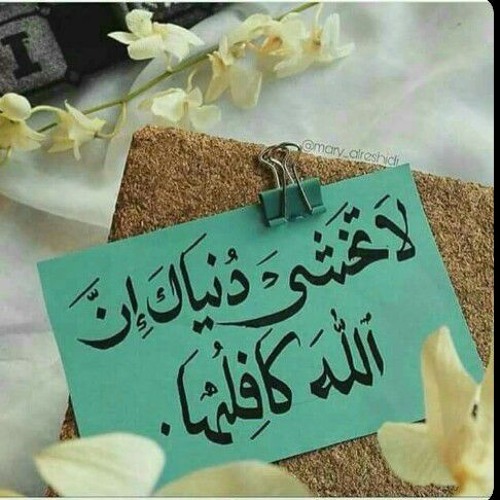 @mary_alreshidi
لَا تَخْشَى دُنياكَ إنَّ
اللهَ كَافِلُهَا.